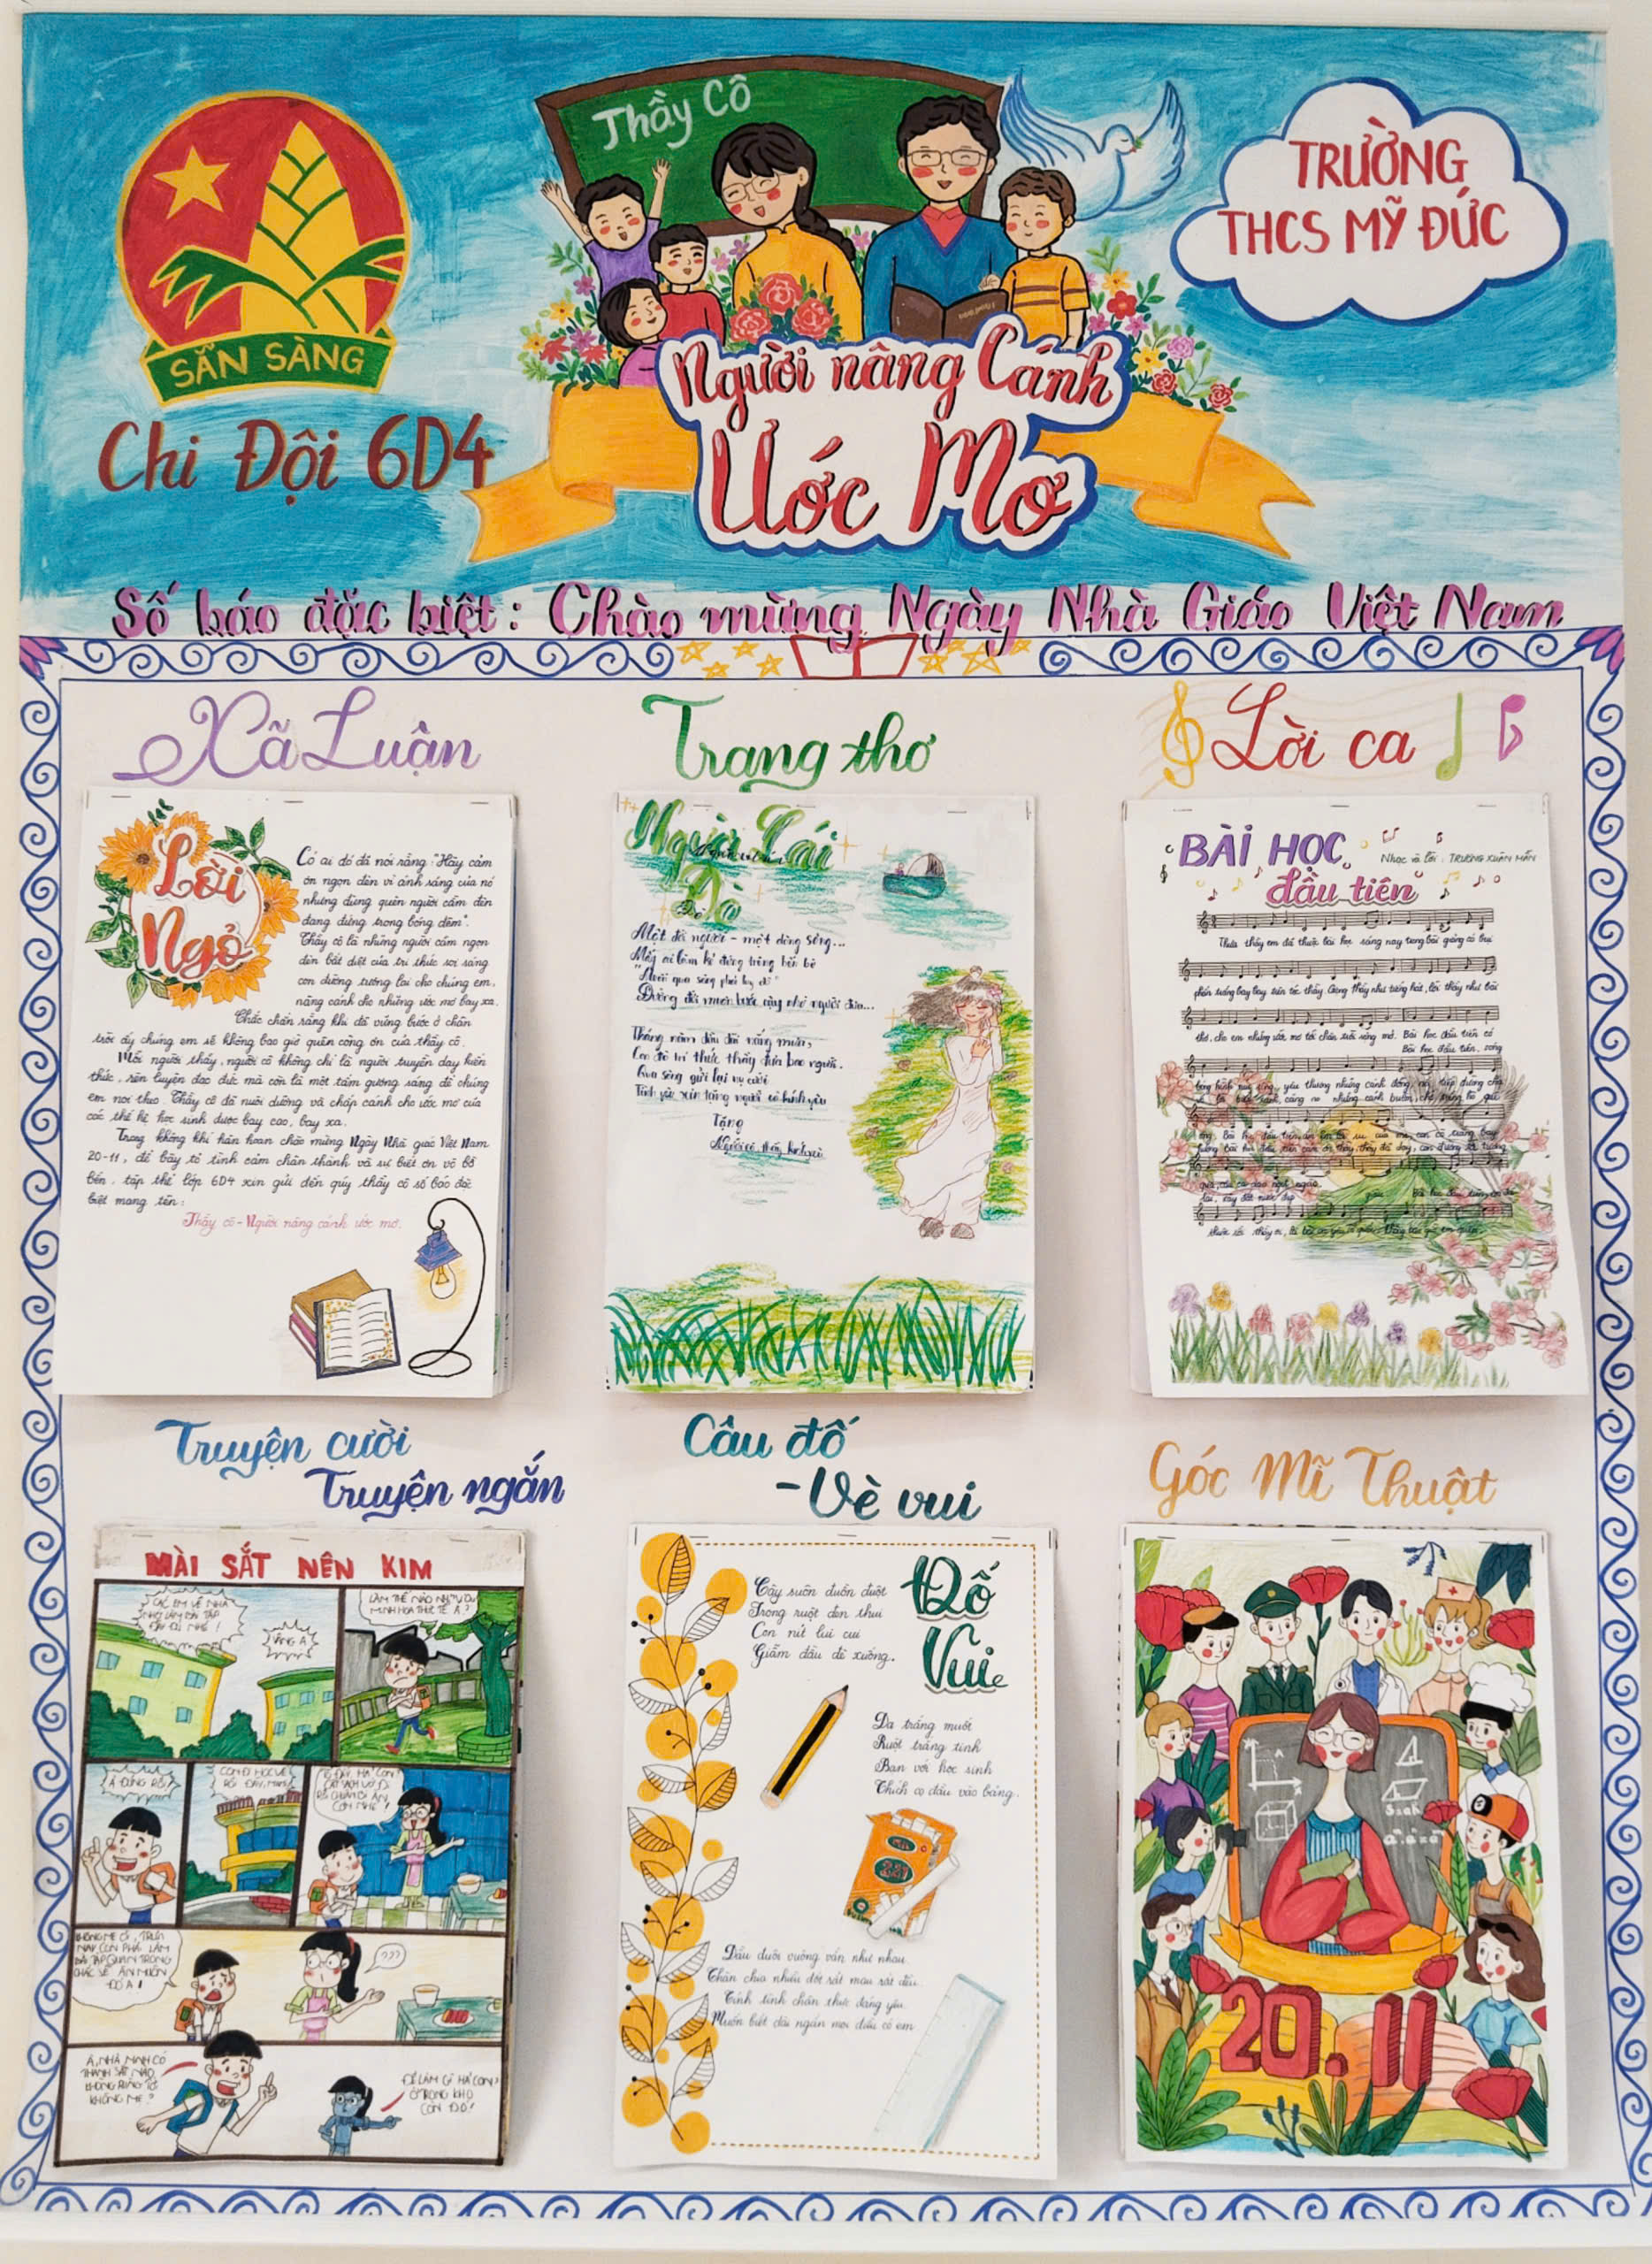 Thầy Cô
TRƯỜNG
THCS MỸ ĐỨC
SẴN SÀNG
Chi Đội 6D4
Người nâng Cánh
Ước Mơ
Số báo đặc biệt: Chào mừng Ngày Nhà Giáo Việt Nam
Xã Luận
Lời
Ngỏ
Có ai đó đã nói rằng: "Hãy cảm
ơn ngọn đèn vì ánh sáng của nó
nhưng đừng quên người cầm đèn
đang đứng trong bóng đêm".
Thầy cô là những người cầm ngọn
đèn bất diệt của tri thức soi sáng
con đường tương lai cho chúng em,
nâng cánh cho những ước mơ bay xa.
Chắc chắn rằng khi đã vững bước ở chân
trời ấy chúng em sẽ không bao giờ quên công ơn của thầy cô.
Mỗi người thầy, người cô không chỉ là người truyền dạy kiến
thức, rèn luyện đạo đức mà còn là một tấm gương sáng để chúng
em noi theo. Thầy cô đã nuôi dưỡng và chắp cánh cho ước mơ của
các thế hệ học sinh được bay cao, bay xa.
Trong không khí hân hoan chào mừng Ngày Nhà giáo Việt Nam
20-11, để bày tỏ tình cảm chân thành và sự biết ơn vô bờ
bến, tập thể lớp 6D4 xin gửi đến qúy thầy cô số báo đặc
biệt mang tên:
Thầy cô - Người nâng cánh ước mơ.
Trang thơ
Người Lái
Đò
Một đời người - một dòng sông...
Mấy ai làm kẻ đứng trông bến bờ
"Muốn qua sông phải lụy đò"
Đường đời muôn bước cậy nhờ người đưa...
Tháng năm dầu dãi nắng mưa,
Con đò tri thức thầy đưa bao người.
Qua sông gửi lại nụ cười
Tặng
Lời ca
BÀI HỌC
đầu tiên
Nhạc và lời: TRƯƠNG XUÂN MẪN
Thưa thầy em đã thuộc bài học sáng nay từng bài giảng có bụi
phấn trắng bay bay trên tóc thầy. Giọng thầy như tiếng hát, lời thầy như bài
thơ, cho em những ước mơ tới chân trời sáng mở. Bài học đầu tiên có
Bài học đầu tiên, sông
Truyện cười
Truyện ngắn
MÀI SẮT NÊN KIM
CÁC EM VỀ NHÀ
NHỚ LÀM BÀI TẬP
ĐẦY ĐỦ NHÉ!
VÂNG Ạ
LÀM THẾ NÀO NHỈ? VD
MINH HỌA THỰC TẾ Á?
Á ĐÚNG RỒI
CON ĐI HỌC VỀ
RỒI ĐÂY, MẸ!
???
À, NHÀ MÌNH CÓ
THANH SẮT NÀO
KHÔNG DÙNG TỚI
KHÔNG MẸ?
ĐỂ LÀM GÌ HẢ CON?
Ở TRONG KHO
CÒN ĐÓ!
Câu đố
- Vè vui
Đố
Vui
Cây suôn đuồn đuột
Trong ruột đen thui
Con nít lui cui
Giẫm đầu đè xuống.
Da trắng muốt
Ruột trắng tinh
Bạn với học sinh
Thích cọ đầu vào bảng.
Đầu đuôi vuông vắn như nhau
Thân chia nhiều đốt rất mau rất đều
Tính tình chân thực đáng yêu
Muốn biết dài ngắn mọi điều có em
Góc Mĩ Thuật
20.11